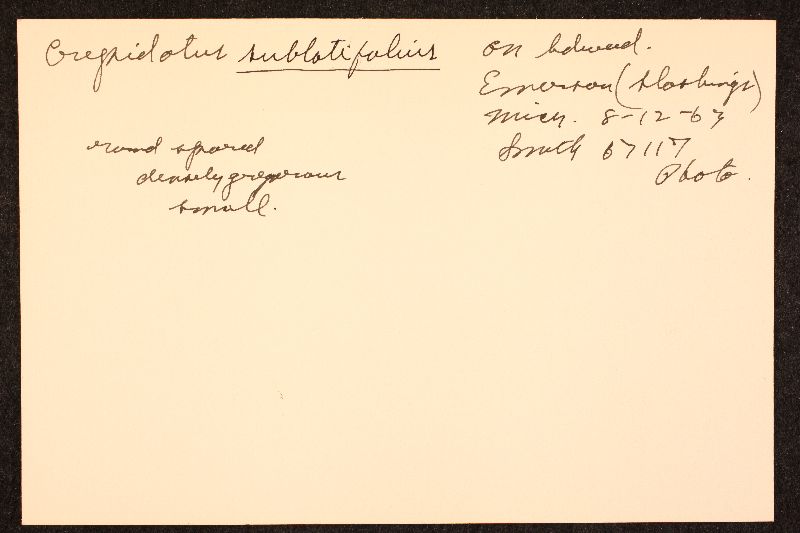 Crepidotus sublatifolius
round spored
densely gregarious
small.
on hdwood.
Emerson (slashings)
Mich. 8-12-63
Smith 67117
Photo.